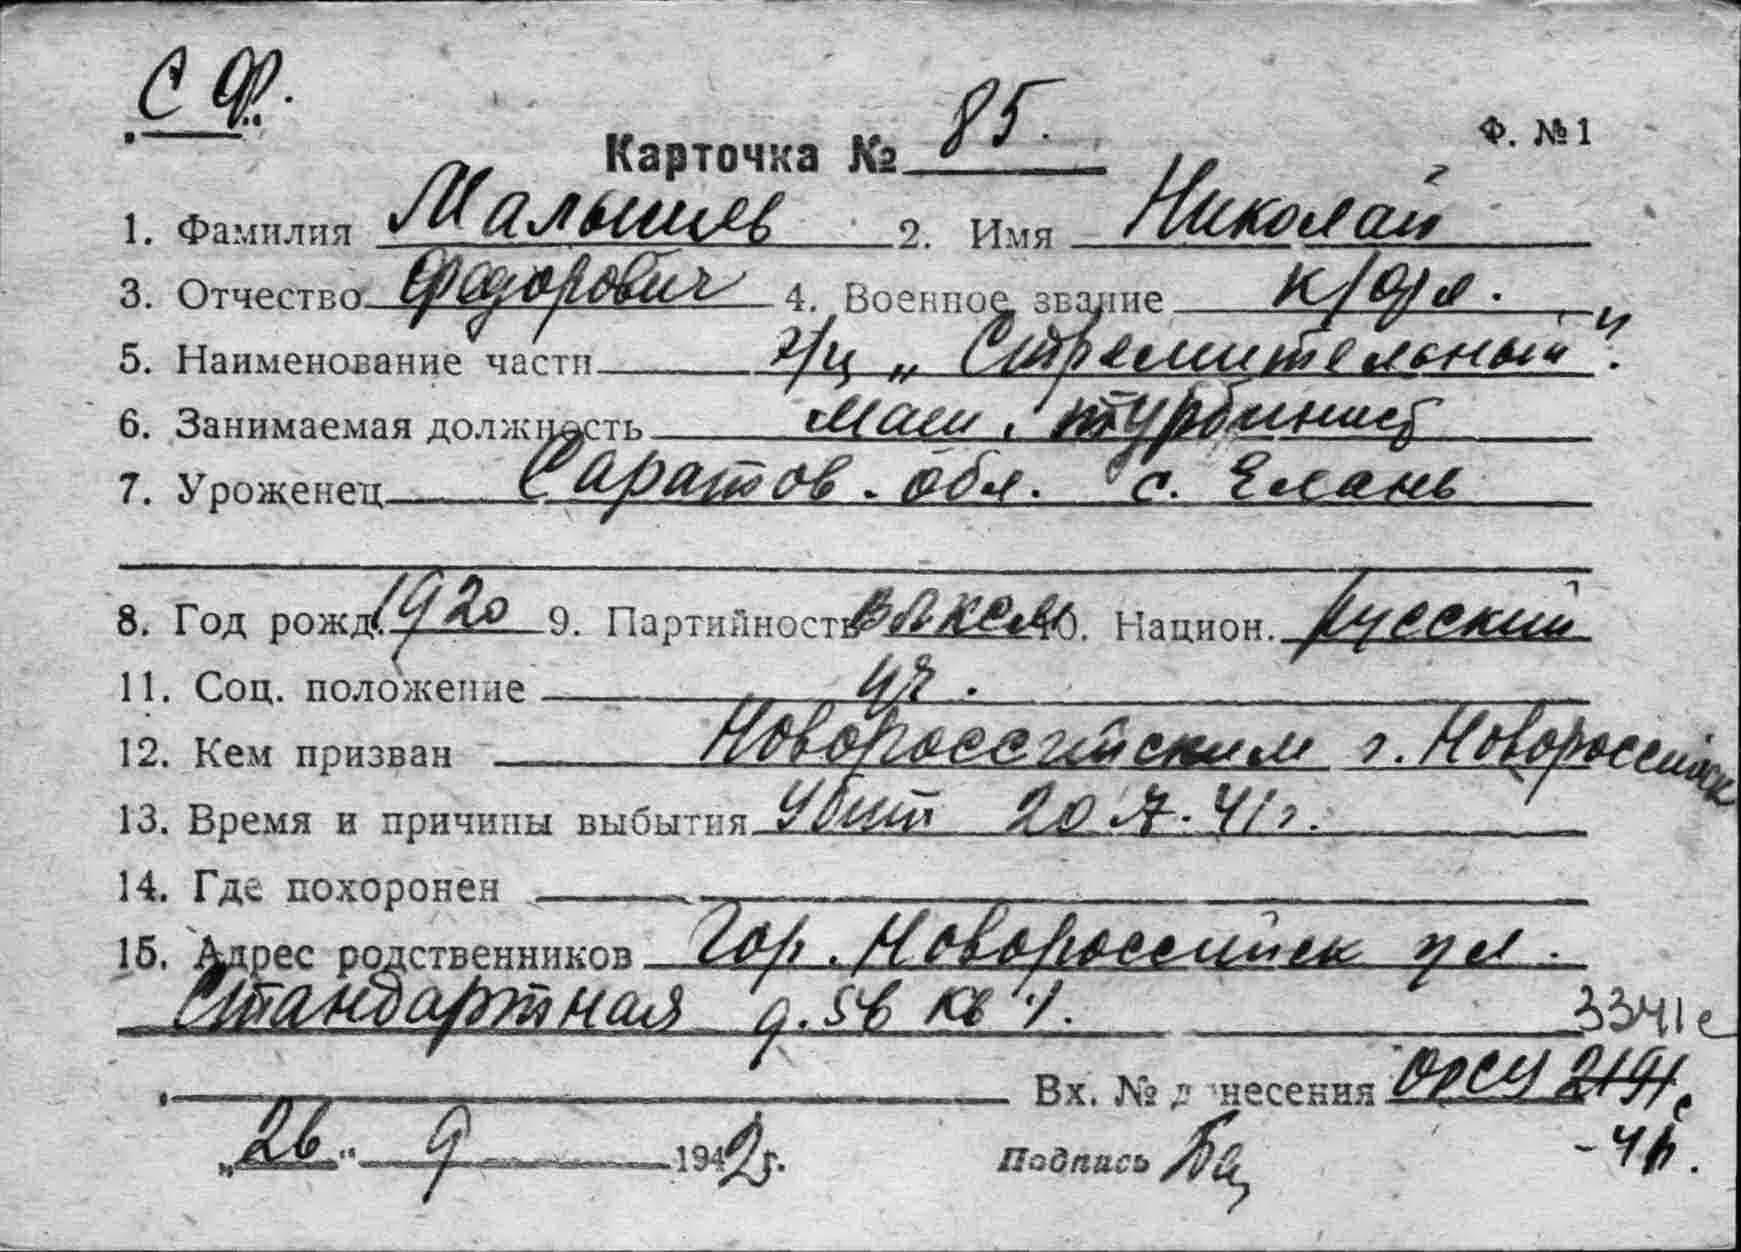 С Ф.
Карточка № 85. Ф. №1
1. Фамилия Малышев 2. Имя Николай
3. Отчество Федорович 4. Военное звание к/фл.
5. Наименование части э/ц „Стремительный".
6. Занимаемая должность маш. турбинист
7. Уроженец Саратов. обл. с. Елань
8. Год рожд. 1920 9. Партийность ВЛКСМ 10. Национ. русский
11. Соц. положение уч.
12. Кем призван Новороссийским г. Новороссийск
13. Время и причины выбытия Убит 20.7.41г.
14. Где похоронен
15. Адрес родственников Гор. Новороссийск ул.
Стандартная д. 5в кв 1. 3341с
Вх. № донесения ОРСУ 2191с
„26" 9 1942г. Подпись -41г.